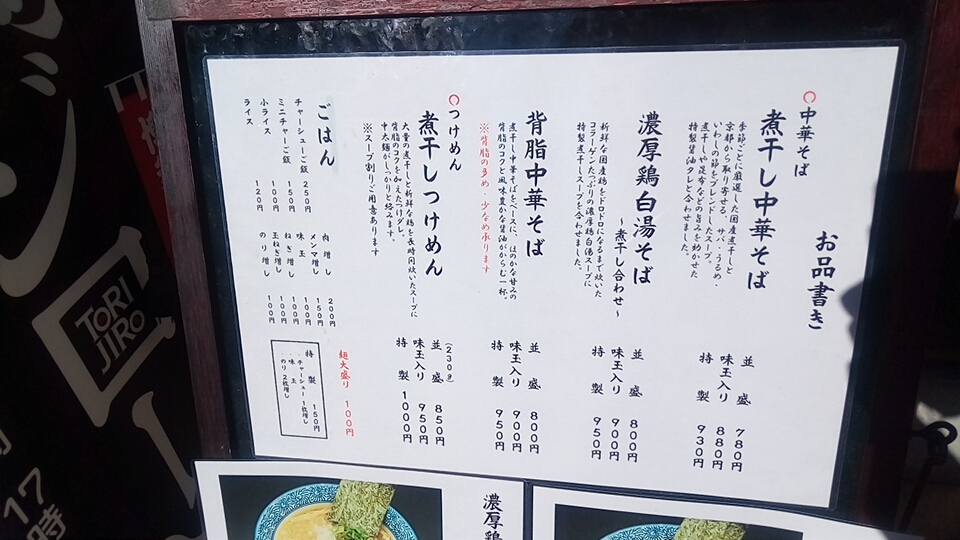 お品書き
○中華そば
煮干し中華そば
季節ごとに厳選した国産煮干しと
京都から取り寄せる、サバ・うるめ・
いわしの節をブレンドしたスープ。
煮干しや昆布などの旨みを効かせた
特製醤油タレと合わせました。
並盛 780円
味玉入り 880円
特製 930円
濃厚鶏白湯そば
~煮干し合わせ~
新鮮な国産鶏をドロドロになるまで炊いた
コラーゲンたっぷりの濃厚鶏白湯スープに
特製煮干しスープを合わせました。
並盛 800円
味玉入り 900円
特製 950円
背脂中華そば
煮干し中華そばをベースに、ほのかな甘みの
背脂のコクと風味豊かな醤油がからむ一杯。
※背脂の多め・少なめ承ります
並盛 800円
味玉入り 900円
特製 950円
○つけめん
煮干しつけめん
大量の煮干しと新鮮な鶏を長時間炊いたスープに
背脂のコクを加えたつけダレ。
中太麺がしっかりと絡みます。
※スープ割りご用意あります
(230g)
並盛 850円
味玉入り 950円
特製 1000円
麺大盛り 100円
ごはん
チャーシューご飯 250円
ミニチャーご飯 150円
小ライス 100円
ライス 120円
肉増し 200円
メンマ増し 150円
味玉 100円
ねぎ増し 100円
玉ねぎ増し 100円
のり増し 100円
特製 150円
・チャーシュー1枚増し
・味玉
・のり2枚増し
TORI
JIRO
17時
濃厚鶏